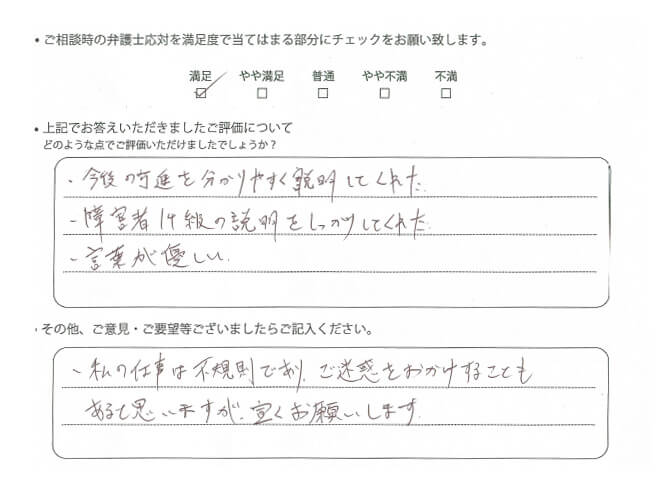 • ご相談時の弁護士応対を満足度で当てはまる部分にチェックをお願い致します。
満足 やや満足 普通 やや不満 不満
☑ □ □ □ □
• 上記でお答えいただきましたご評価について
どのような点でご評価いただけましたでしょうか？
・今後の を分かりやすく説明してくれた。
・障害者14級の説明をしっかりしてくれた。
・言葉が優しい。
・その他、ご意見・ご要望等ございましたらご記入ください。
・私の仕事は不規則であり、ご迷惑をおかけすることも
あると思いますが、宜くお願いします。